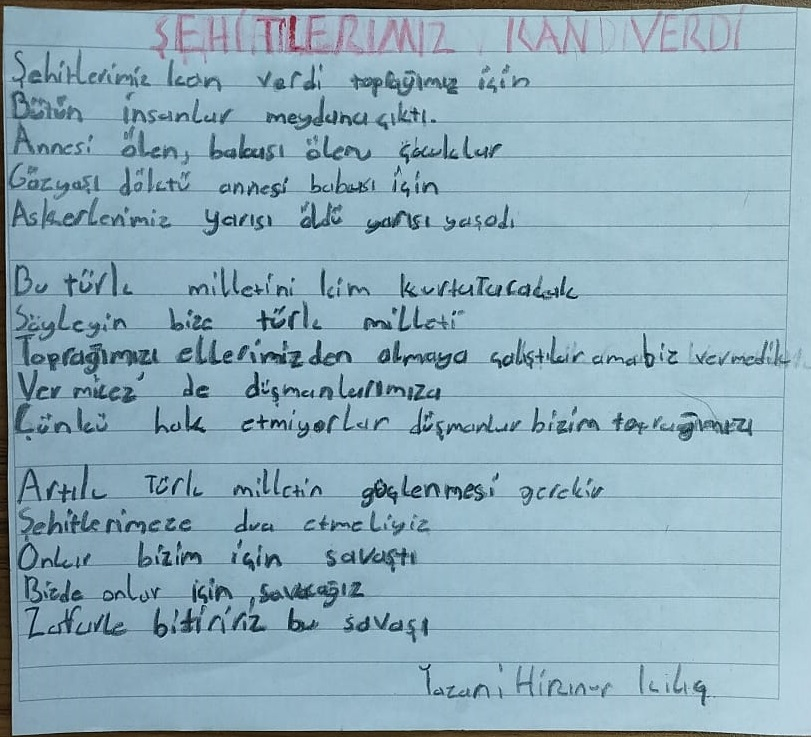 ŞEHİTLERİMİZ KAN VERDİ
Şehitlerimiz kan verdi toprağımız için
Bütün insanlar meydana çıktı.
Annesi ölen, babası ölen çocuklar
Gözyaşı döktü annesi babası için
Askerlerimiz yarısı öldü yarısı yaşadı
Bu türk milletini kim kurtaracak
Söyleyin bize türk milleti
Toprağımızı ellerimizden almaya çalıştılar ama biz vermedik
Vermicez de düşmanlarımıza
Çünkü hak etmiyorlar düşmanlar bizim toprağımızı
Artık Türk milletin güçlenmesi gerekir
Şehitlerimeze dua etmeliyiz
Onlar bizim için savaştı
Bizde onlar için
Zaferle bitiririz bu savaşı
Yazan: Kılıç